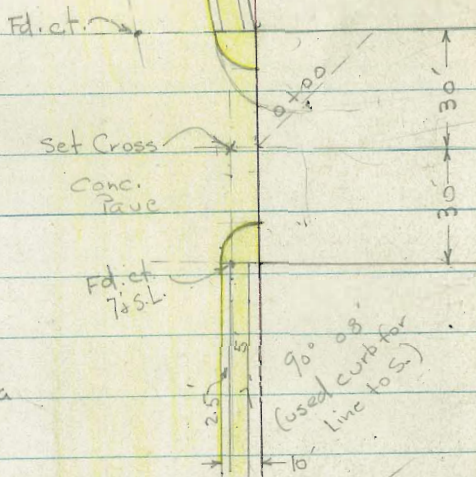 Fd. ct.
0+00
30'
Set Cross
Conc.
Pave
30'
Fd. ct.
90° 08'
(used curb for
Line to S.)
5
2.5'
10'